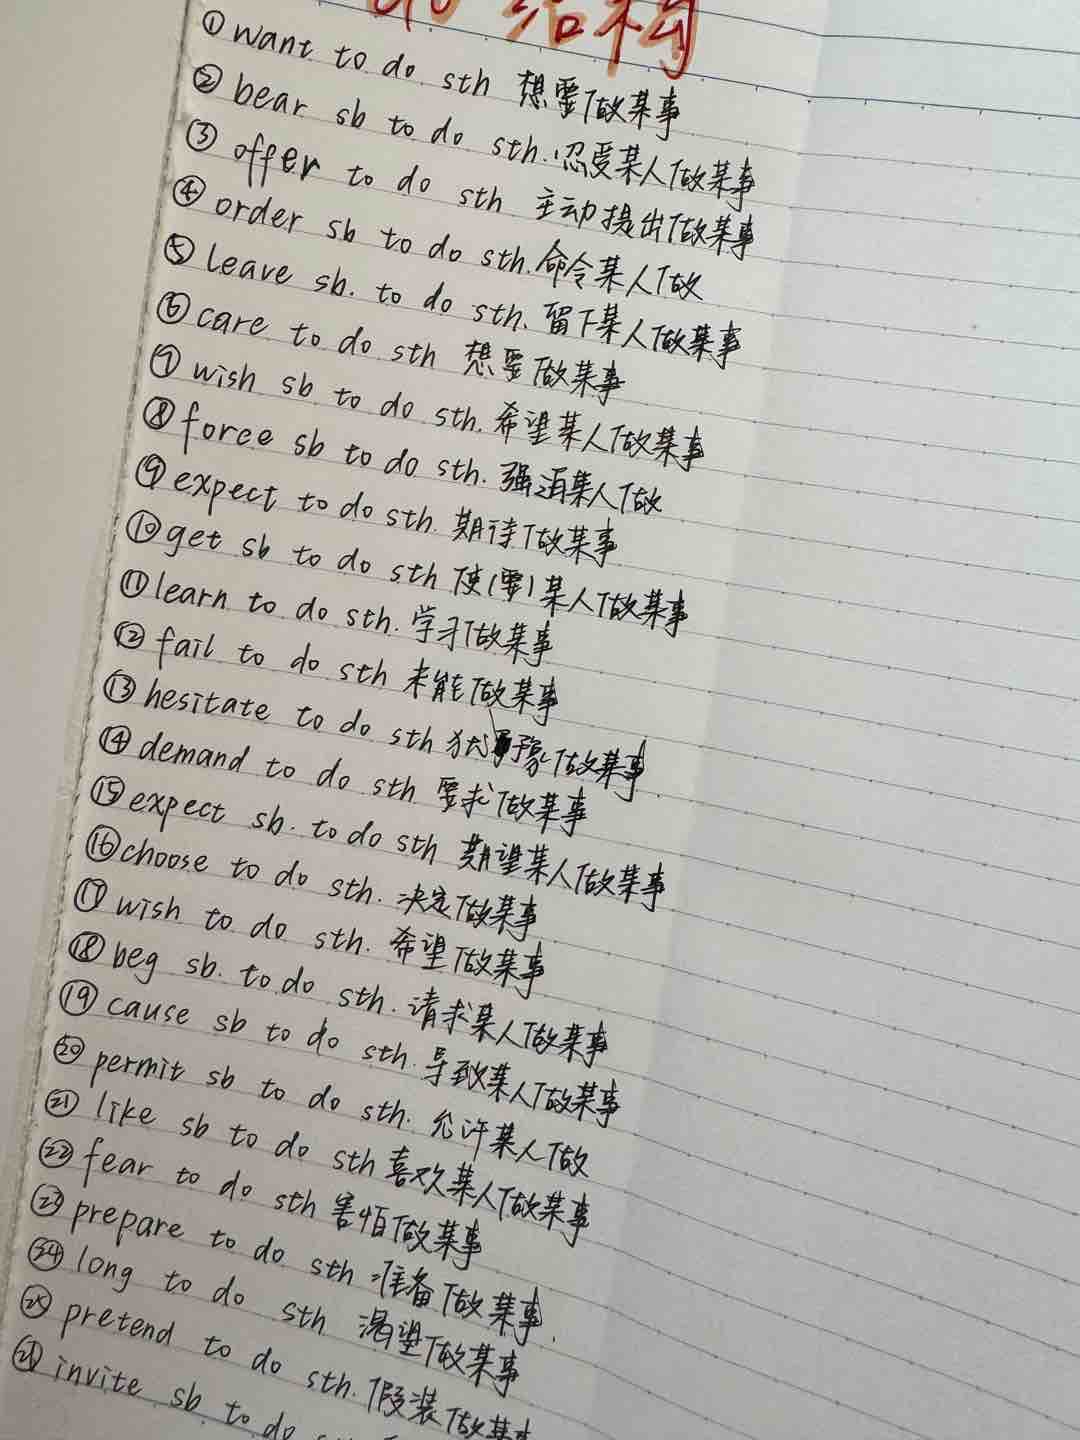 do 结构
① want to do sth 想要做某事
② bear sb to do sth. 忍受某人做某事
③ offer to do sth 主动提出做某事
④ order sb to do sth. 命令某人做
⑤ leave sb. to do sth. 留下某人做某事
⑥ care to do sth 想要做某事
⑦ wish sb to do sth. 希望某人做某事
⑧ force sb to do sth. 强迫某人做
⑨ expect to do sth. 期待做某事
⑩ get sb to do sth 使(要)某人做某事
⑪ learn to do sth. 学习做某事
⑫ fail to do sth 未能做某事
⑬ hesitate to do sth 犹豫做某事
⑭ demand to do sth 要求做某事
⑮ expect sb. to do sth 期望某人做某事
⑯ choose to do sth. 决定做某事
⑰ wish to do sth. 希望做某事
⑱ beg sb. to do sth. 请求某人做某事
⑲ cause sb to do sth. 导致某人做某事
⑳ permit sb to do sth. 允许某人做
㉑ like sb to do sth 喜欢某人做某事
㉒ fear to do sth 害怕做某事
㉓ prepare to do sth 准备做某事.
㉔ long to do sth 渴望做某事
㉕ pretend to do sth. 假装做某事
invite sb to do